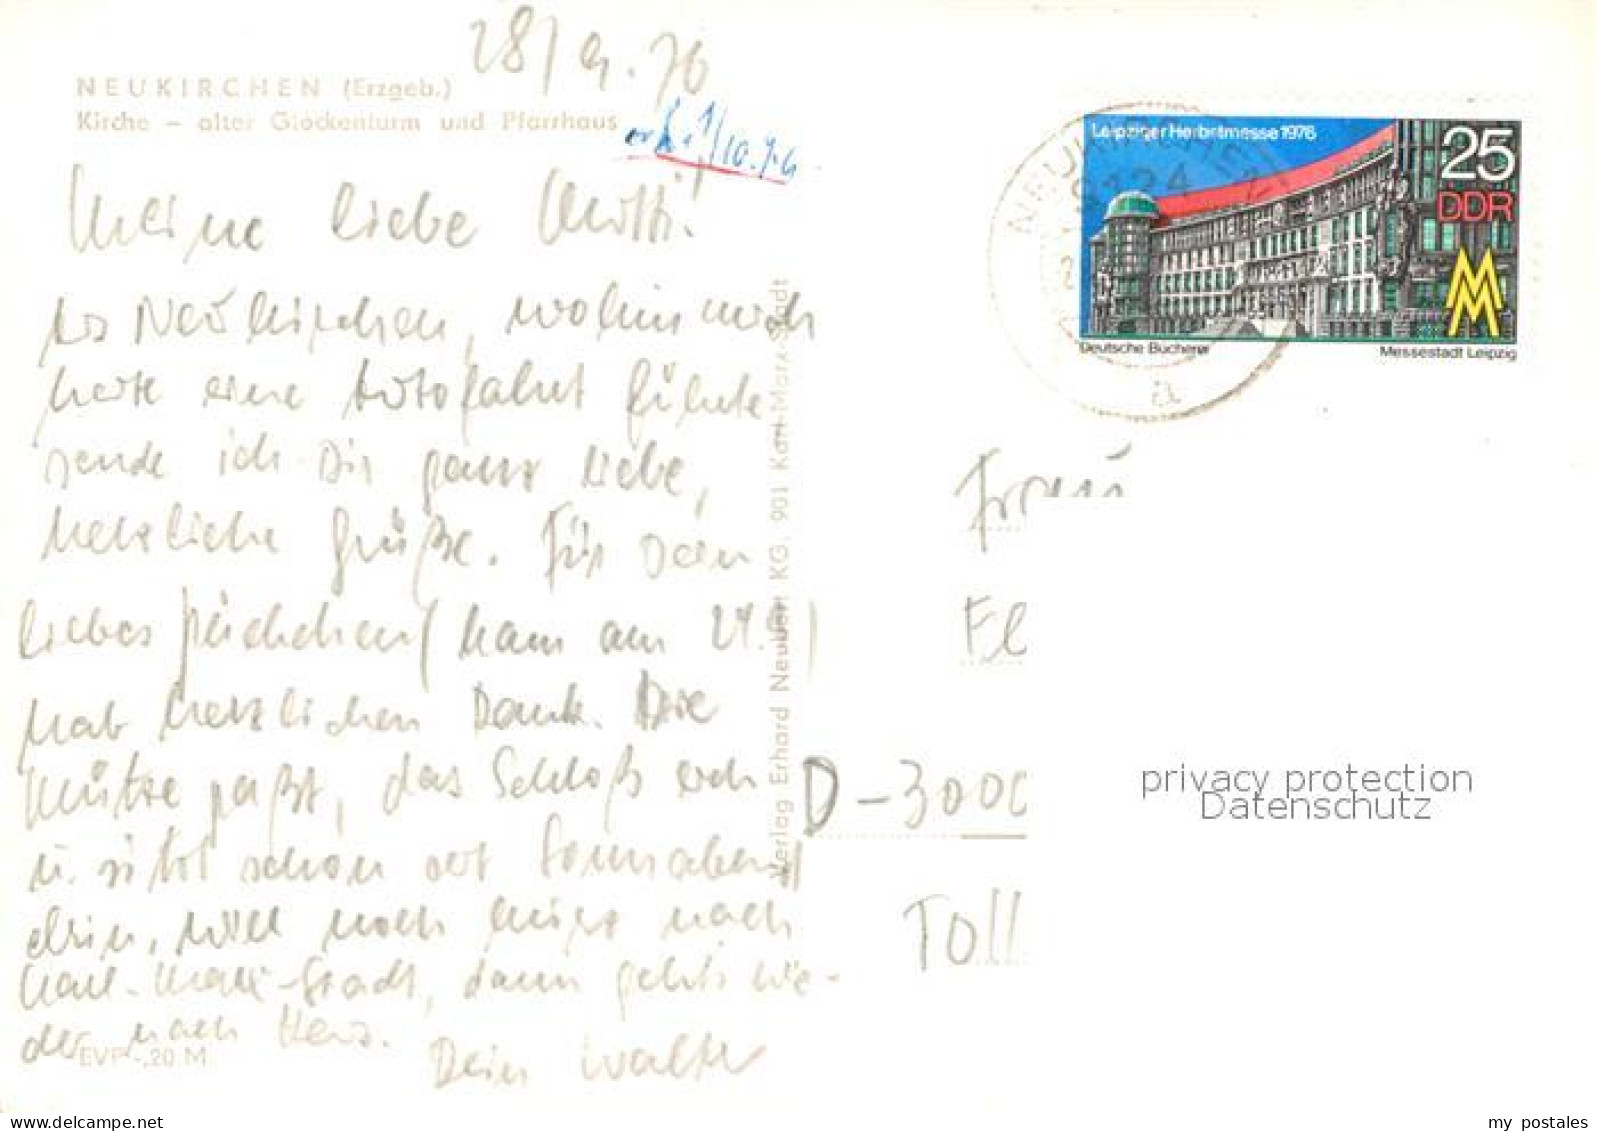 28/9.76
NEUKIRCHEN (Erzgeb.)
Kirche - alter Glockenturm und Pfarrhaus
erh. 1/10.76
Meine liebe Mutti!
Aus Neukirchen, wohin mich
heute eine Autofahrt führte
sende ich Dir ganz liebe,
herzliche Grüße. Für Dein
liebes Päckchen (kam am 24.9.)
hab herzlichen Dank. Die
Mütze paßt, das Schloß auch
u. sitzt schon seit Sonnabend
drin, will noch kurz nach
Karl-Marx-Stadt, dann gehts wie-
der nach Haus.
Dein Walter
EVP -,20 M
Verlag Erhard Neubert KG, 901 Karl-Marx-Stadt
Leipziger Herbstmesse 1976
25
DDR
MM
Deutsche Bücherei
Messestadt Leipzig
NEUKIRCHEN
9124
a
Frau
El
D-3000
Toll
privacy protection
Datenschutz
www.delcampe.net
my_postales